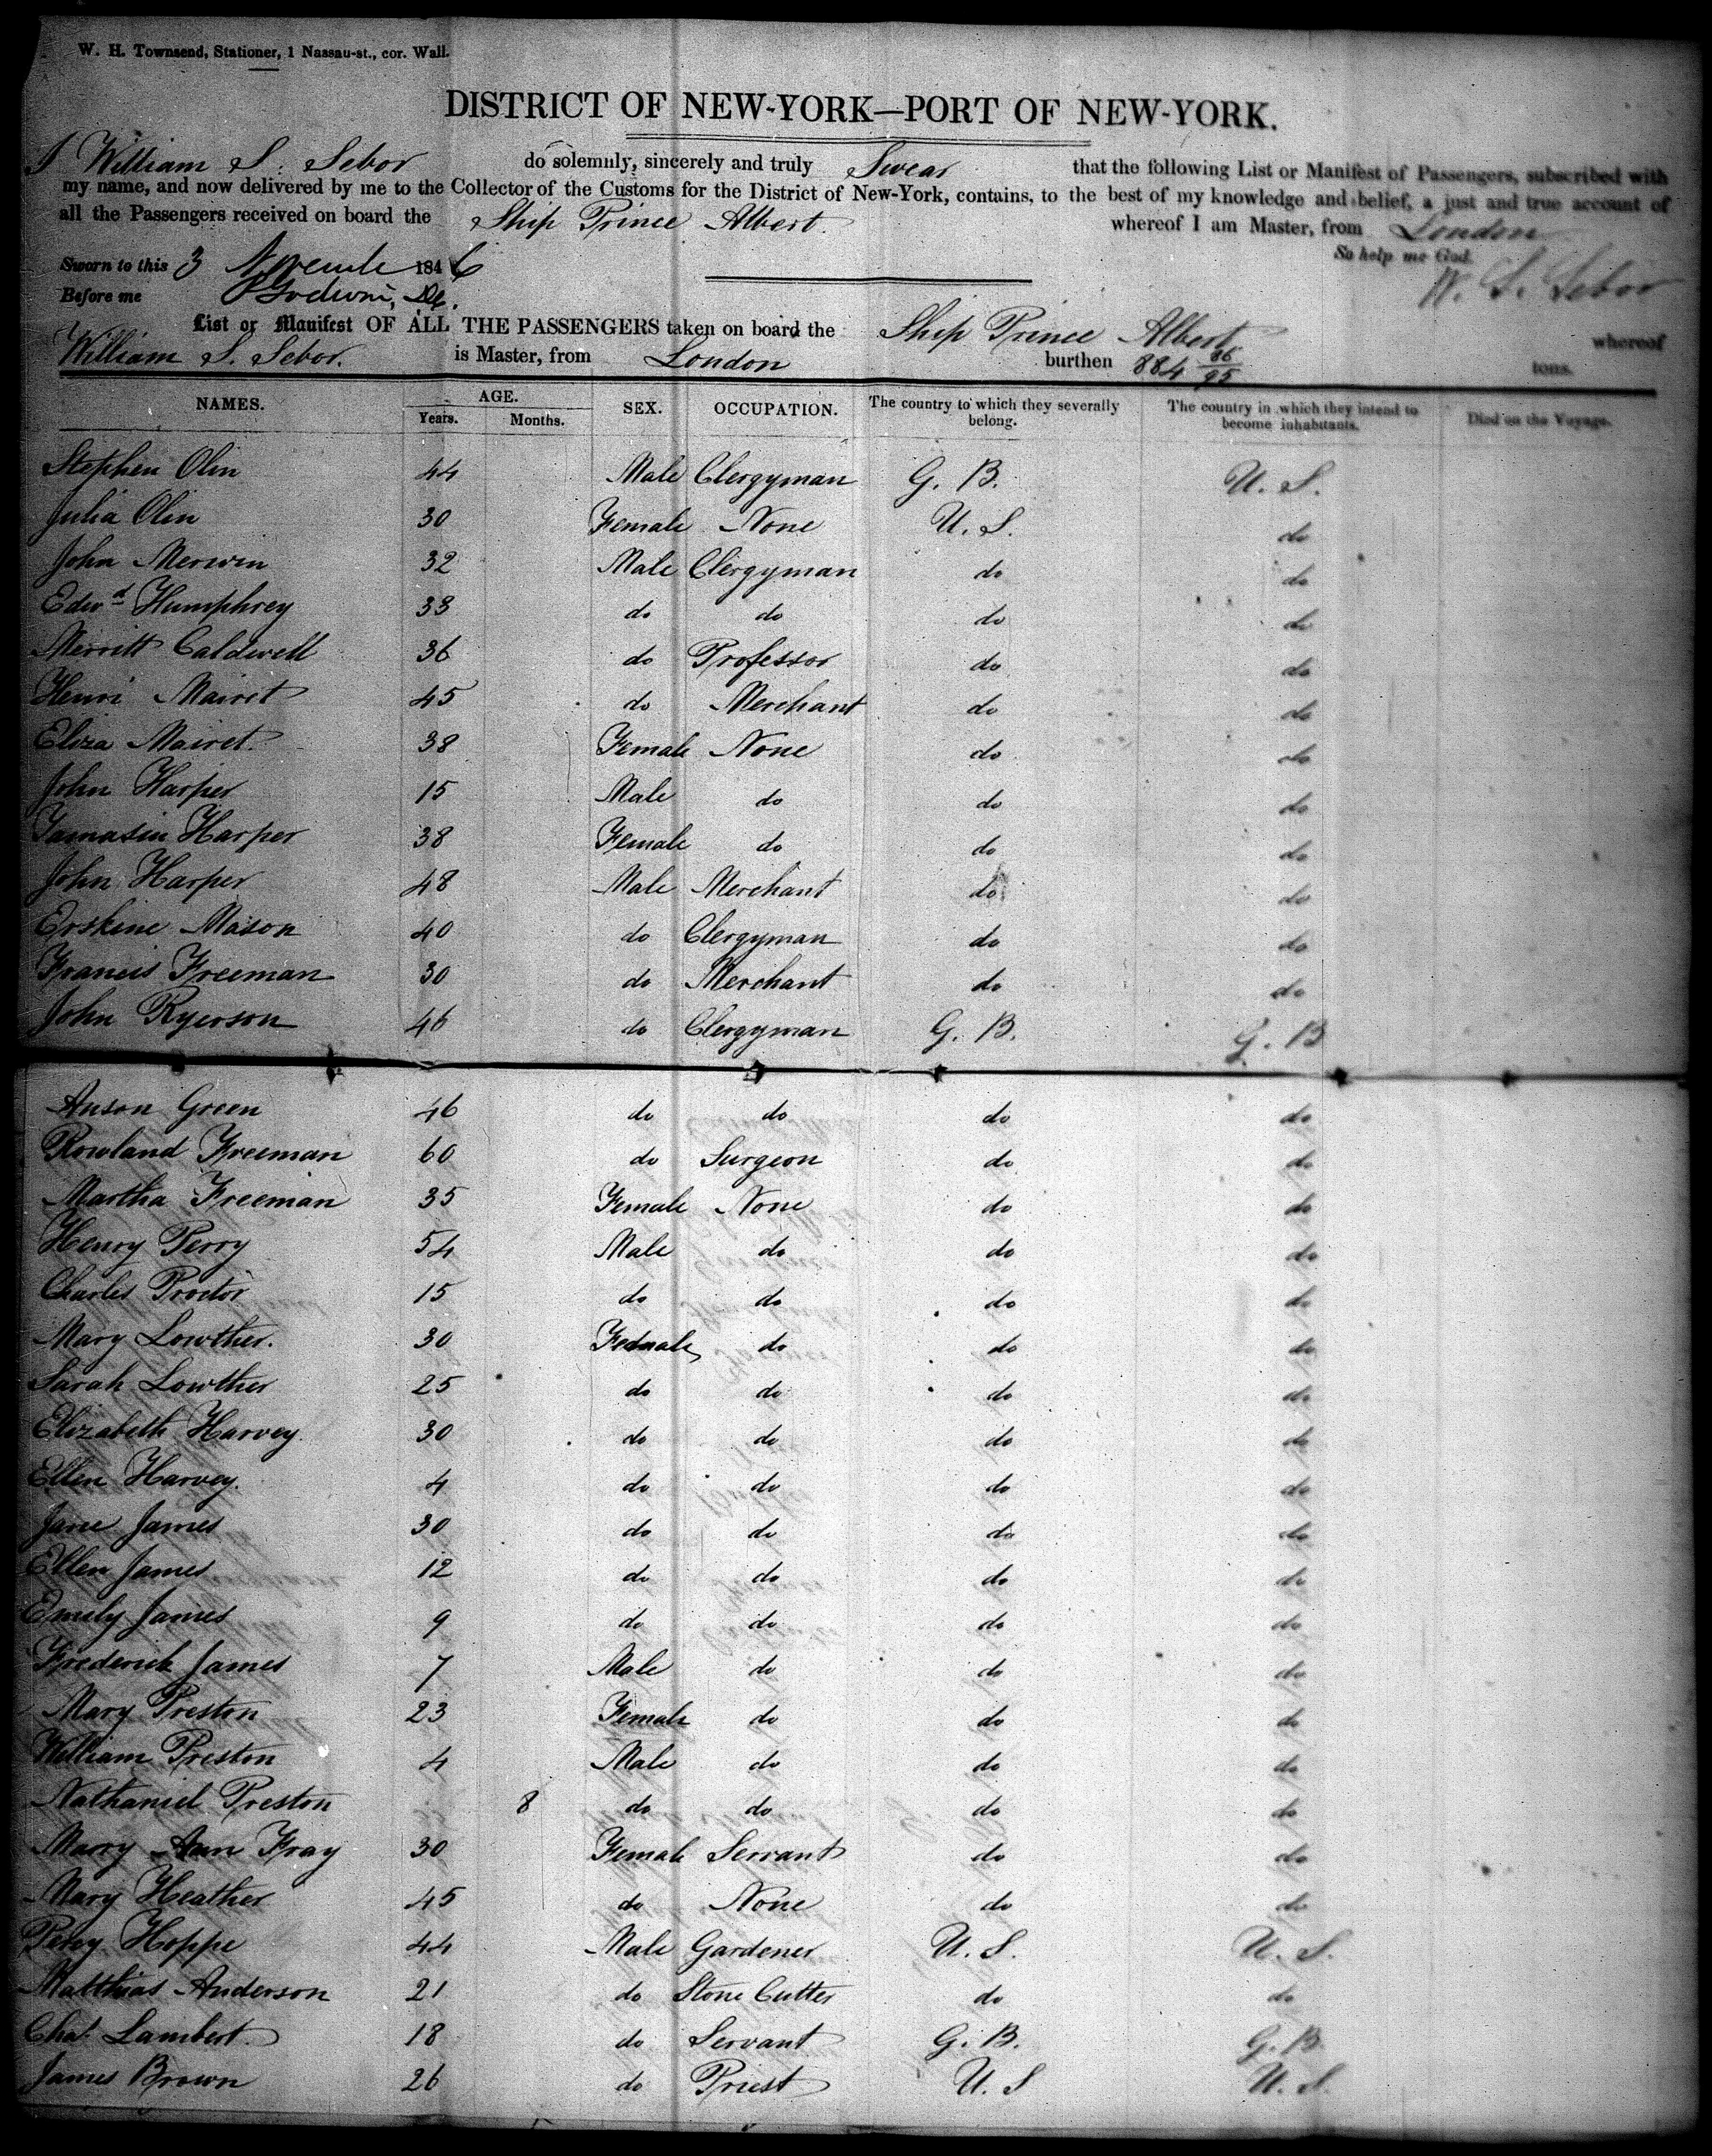 W. H. Townsend, Stationer, 1 Nassau-st., cor. Wall.
DISTRICT OF NEW-YORK—PORT OF NEW-YORK.
I William S. Sebor do solemnly, sincerely and truly Swear that the following List or Manifest of Passengers, subscribed with
my name, and now delivered by me to the Collector of the Customs for the District of New-York, contains, to the best of my knowledge and belief, a just and true account of
all the Passengers received on board the Ship Prince Albert. whereof I am Master, from London
So help me God.
Sworn to this 3 Novemb 1846
W. S. Sebor
Before me
List or Manifest OF ALL THE PASSENGERS taken on board the Ship Prince Albert whereof
William S. Sebor. is Master, from London burthen 884 36/95 tons.
NAMES. AGE. Years. Months. SEX. OCCUPATION. The country to which they severally belong. The country in which they intend to become inhabitants. Died on the Voyage.
Stephen Olin 44 Male Clergyman G. B. U. S.
Julia Olin 30 Female None U. S. do
John Merwin 32 Male Clergyman do do
Edwd Humphrey 33 do do do do
Merritt Caldwell 36 do Professor do do
Henri Mairet 45 do Merchant do do
Eliza Mairet. 38 Female None do do
John Harper 15 Male do do do
Tamasin Harper 38 Female do do do
John Harper 48 Male Merchant do do
Erskine Mason 40 do Clergyman do do
Francis Freeman 30 do Merchant do do
John Ryerson 46 do Clergyman G. B. G. B
Anson Green 46 do do do do
Rowland Freeman 60 do Surgeon do do
Martha Freeman 35 Female None do do
Henry Perry 54 Male do do do
Charles Proctor 15 do do do do
Mary Lowther. 30 Female do do do
Sarah Lowther 25 do do do do
Elizabeth Harvey 30 do do do do
Ellen Harvey. 4 do do do do
Jane James 30 do do do do
Ellen James 12 do do do do
Emily James 9 do do do do
Frederick James 7 Male do do do
Mary Preston 23 Female do do do
William Preston 4 Male do do do
Nathaniel Preston 8 do do do do
Mary Ann Fray 30 Female Servant do do
Mary Heather 45 do None do do
Percy Hoppe 44 Male Gardener U. S. U. S.
Matthias Anderson 21 do Stone Cutter do do
Chas. Lambert 18 do Servant G. B. G. B
James Brown 26 do Priest U. S U. S.